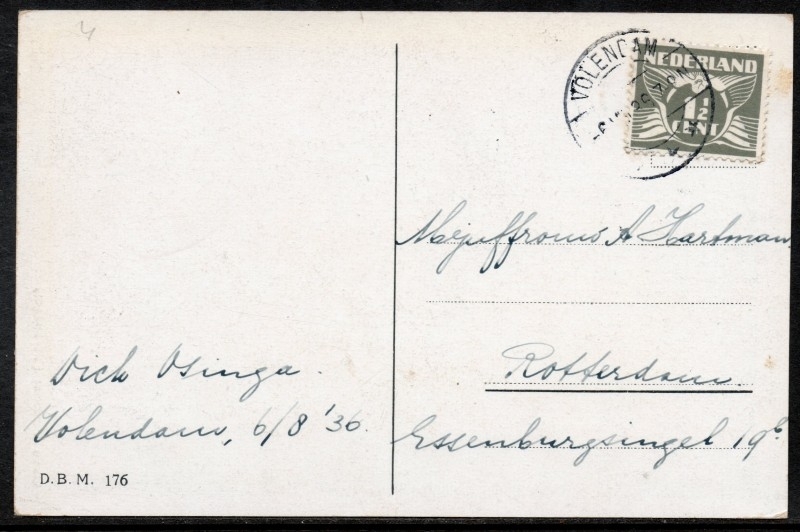 VOLENDAM
NEDERLAND
1½
CENT
Mejuffrouw A Hartman
Rotterdam.
Essenburgsingel 19b
Dick Osinga.
Volendam, 6/8 '36.
D.B.M. 176